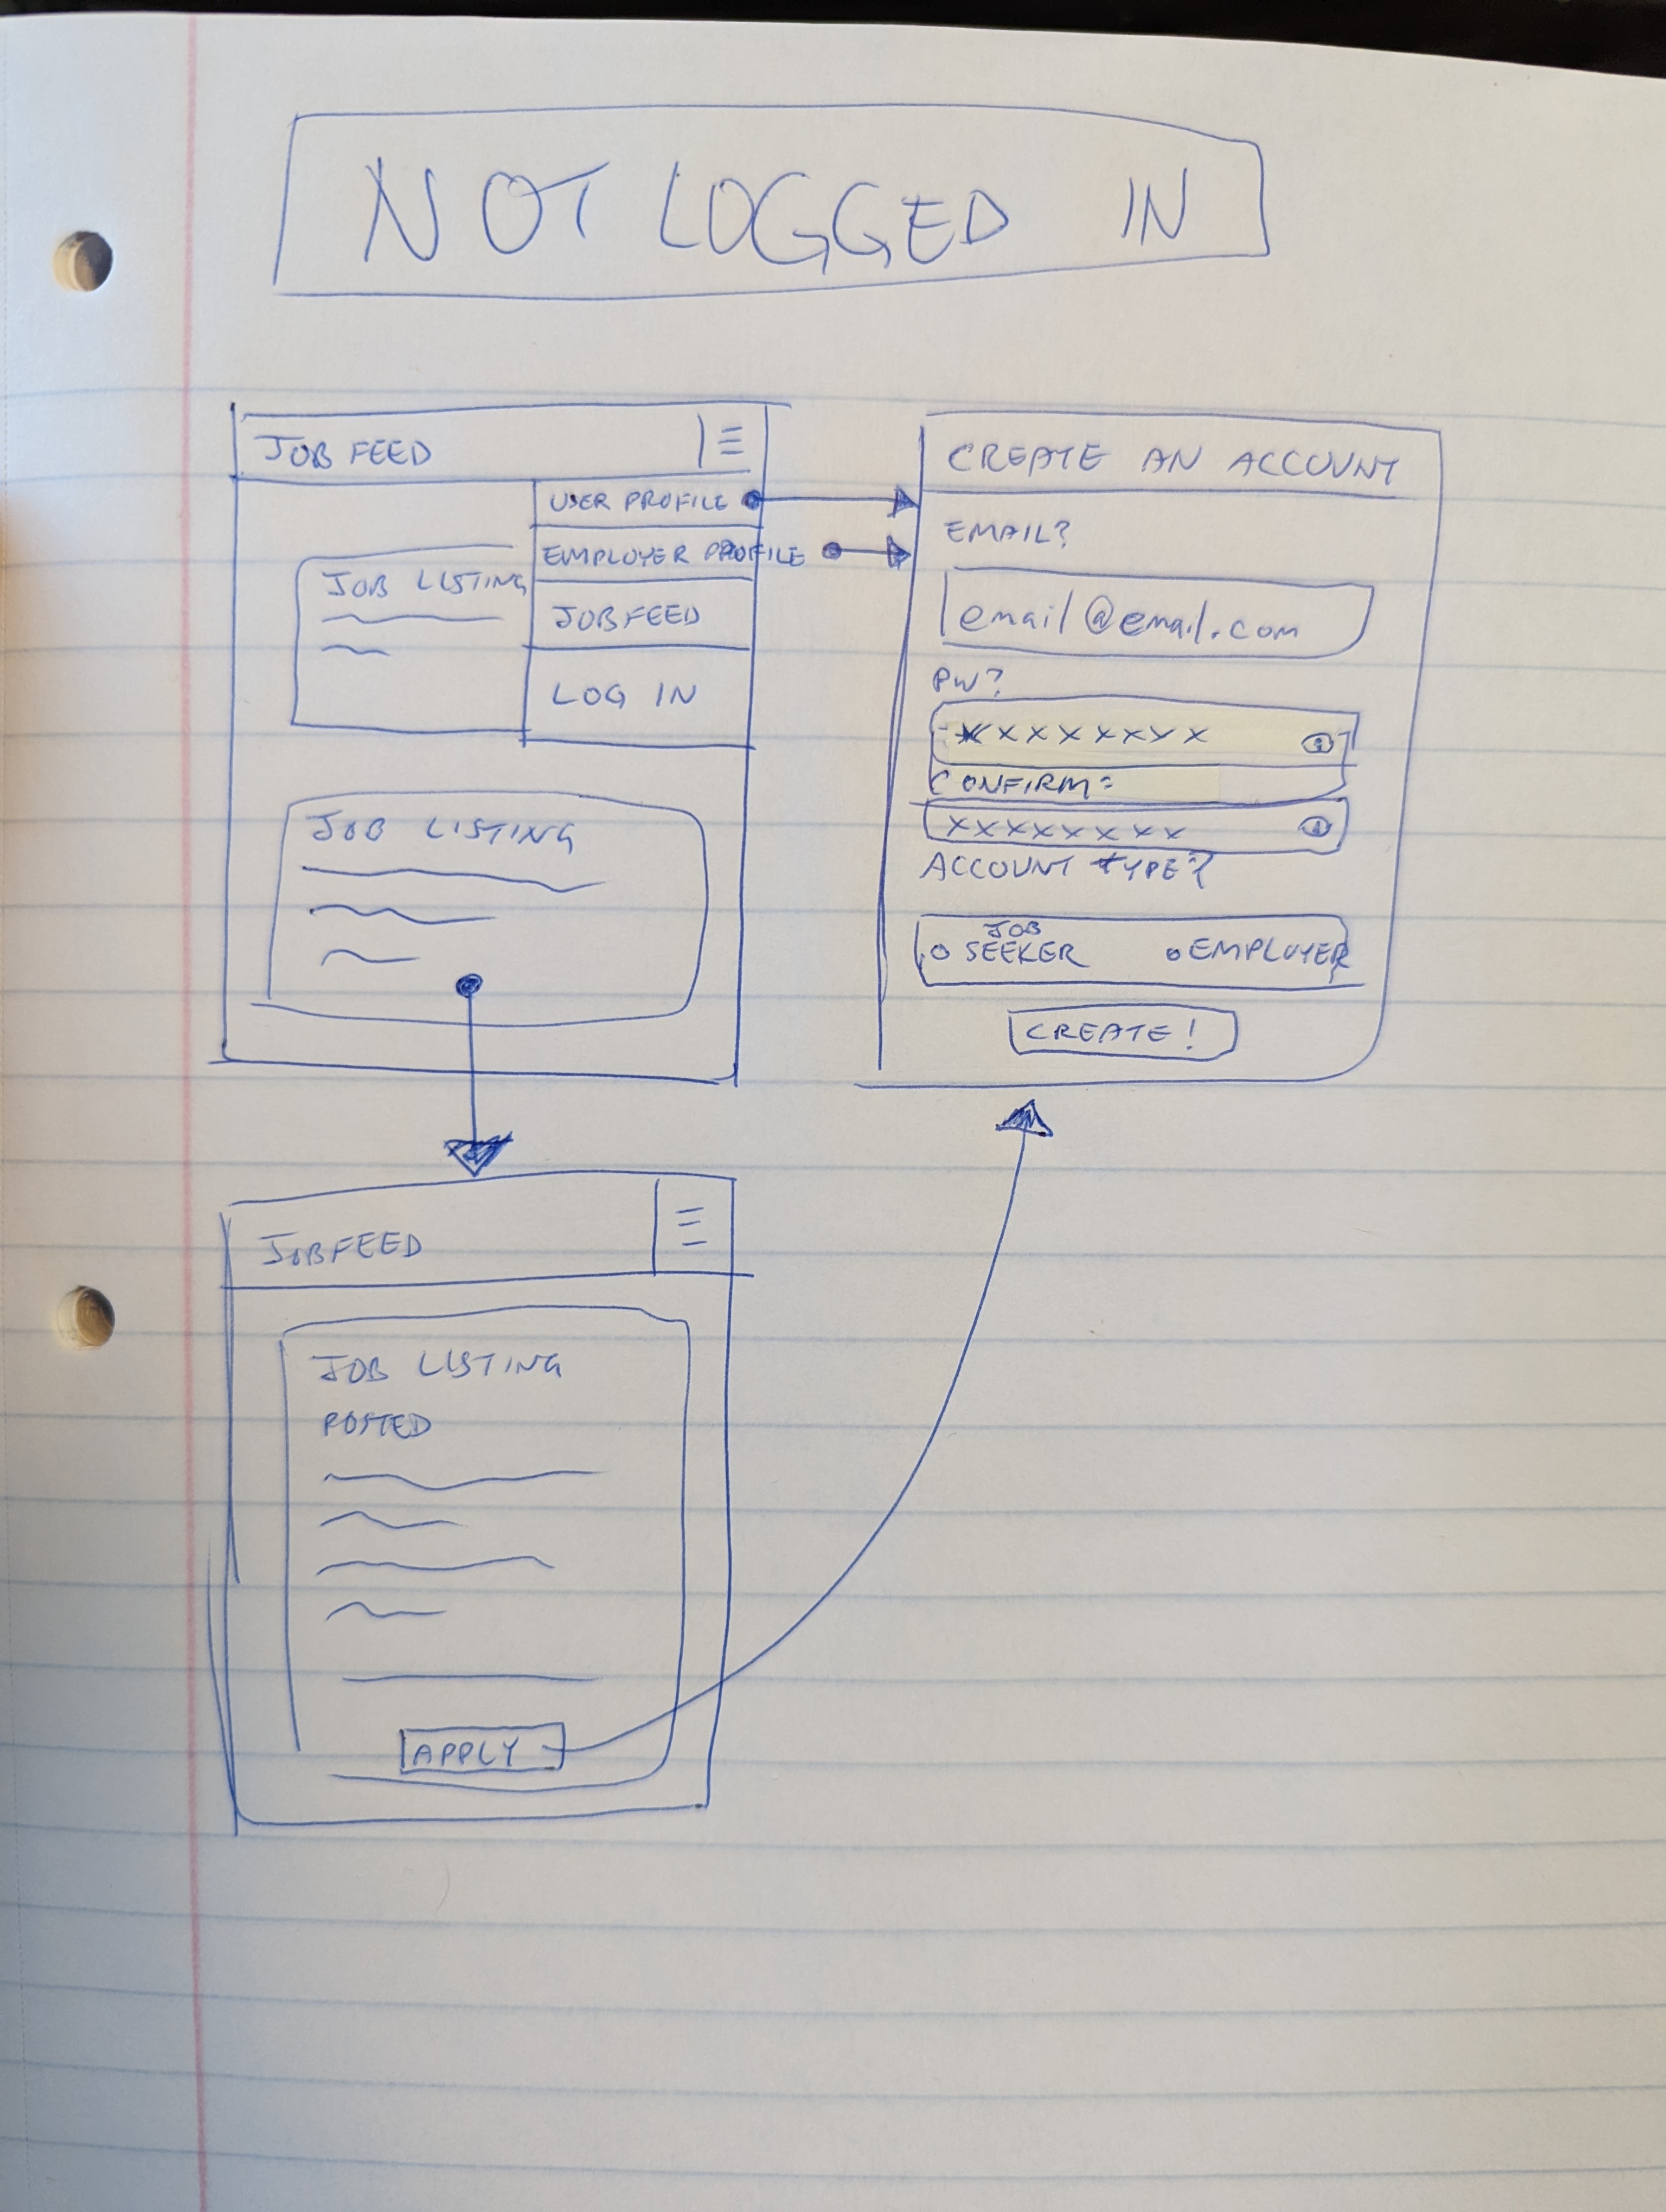 NOT LOGGED IN
JOB FEED
USER PROFILE
EMPLOYER PROFILE
JOBFEED
LOG IN
JOB LISTING
JOB LISTING
CREATE AN ACCOUNT
EMAIL?
email@email.com
PW?
xxxxxxxx
CONFIRM:
xxxxxxxx
ACCOUNT TYPE?
JOB
SEEKER EMPLOYER
CREATE!
JOBFEED
JOB LISTING
POSTED
APPLY